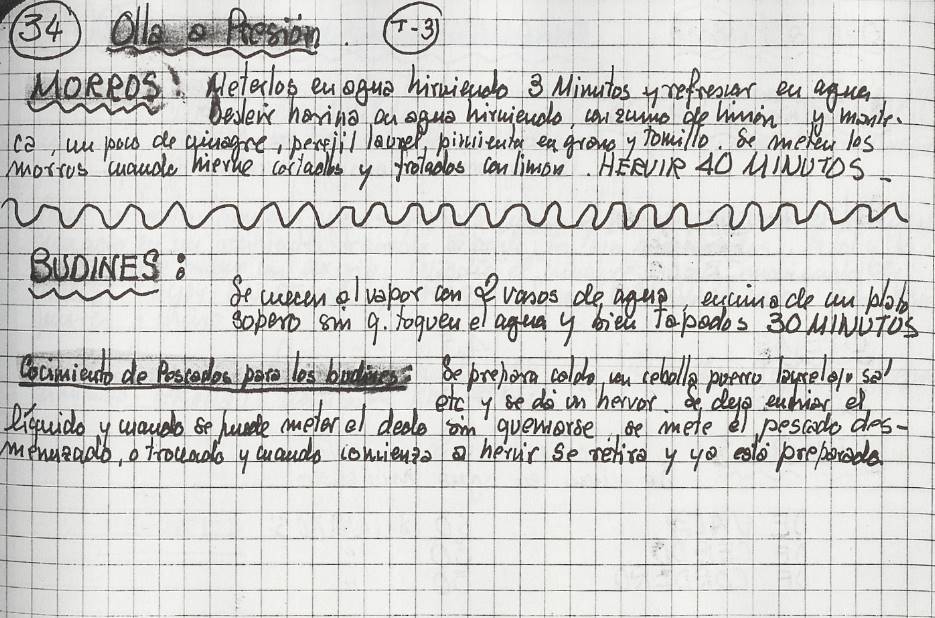 34 Olla a Presión. T-3
MORROS: Meterlos en agua hirviendo 3 Minutos y refrescar en agua
Desleir harina en agua hirviendo, con zumo de limón y mante-
ca, un poco de vinagre, perejil laurel, pimienta en grano y tomillo. Se meten los
morros cuando hierve cortados y frotados con limon. HERVIR 40 MINUTOS -
BUDINES:
Se cuecen al vapor con 2 vasos de agua, encima de un plato
sopero sin q. toquen el agua y bien tapados 30 MINUTOS
Cocimiento de Pescados para los budines: Se prepara caldo, con cebolla puerro laurel ajo sal
etc y se dá un hervor. Se deja enfriar el
líquido y cuando se puede meter el dedo sin quemarse, se mete el pescado des-
menuzado, o troceado y cuando comienza a hervir se retira y ya está preparado